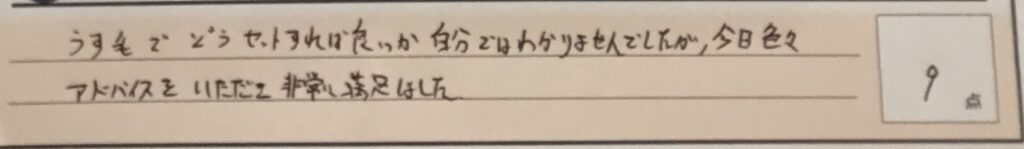 うす毛でどうセットすれば良いか自分ではわかりませんでしたが、今日色々
アドバイスをいただき非常に満足しました
9点